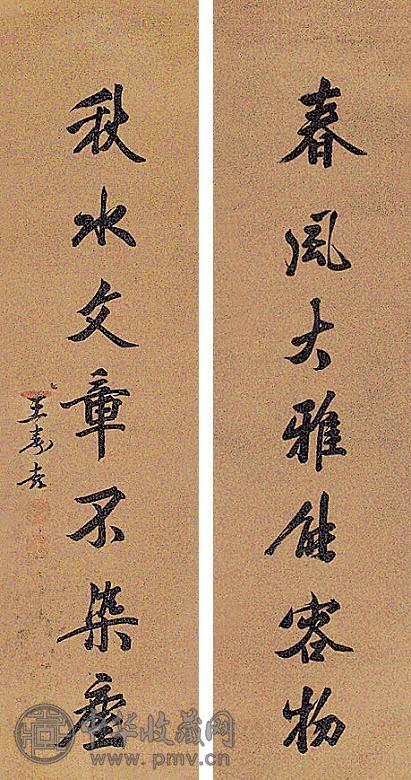 春風大雅能容物
秋水文章不染塵
王壽
中华收藏网
www.pmv.cn